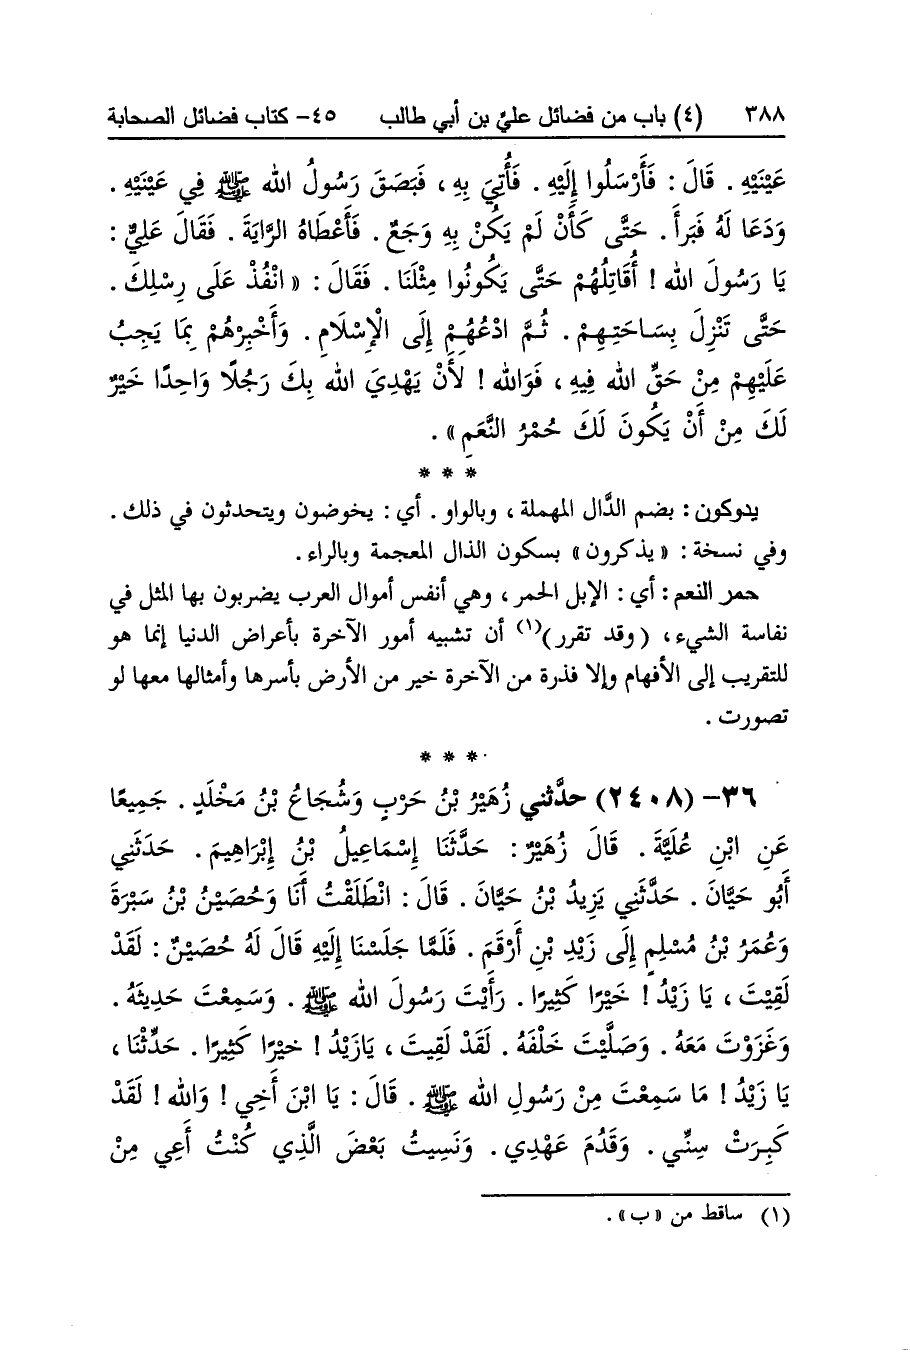 ٣٨٨ (٤) باب من فضائل عليّ بن أبي طالب ٤٥- كتاب فضائل الصحابة
عَيْنَيْهِ . قَالَ : فَأَرْسَلُوا إِلَيْهِ . فَأُتِيَ بِهِ ، فَبَصَقَ رَسُولُ الله ﷺ فِي عَيْنَيْهِ .
وَدَعَا لَهُ فَبَرأَ . حَتَّى كَأَنْ لَمْ يَكُنْ بِهِ وَجَعٌ . فَأَعْطَاهُ الرَّايَةَ . فَقَالَ عَلِيٌّ :
يَا رَسُولَ الله ! أُقَاتِلُهُمْ حَتَّى يَكُونُوا مِثْلَنَا . فَقَالَ : « انْفُذْ عَلَى رِسْلِكَ .
حَتَّى تَنْزِلَ بِسَاحَتِهِمْ . ثُمَّ ادْعُهُمْ إِلَى الْإِسْلَامِ . وَأَخْبِرْهُمْ بِمَا يَجِبُ
عَلَيْهِمْ مِنْ حَقِّ الله فِيهِ ، فَوَالله ! لأَنْ يَهْدِيَ الله بِكَ رَجُلًا وَاحِدًا خَيْرٌ
لَكَ مِنْ أَنْ يَكُونَ لَكَ حُمْرُ النَّعَمِ » .
* * *
يدوكون : بضم الدَّال المهملة ، وبالواو . أي : يخوضون ويتحدثون في ذلك .
وفي نسخة : « يذكرون » بسكون الذال المعجمة وبالراء .
حمر النعم : أي : الإبل الحمر ، وهي أنفس أموال العرب يضربون بها المثل في
نفاسة الشيء ، ( وقد تقرر )(١) أن تشبيه أمور الآخرة بأعراض الدنيا إنما هو
للتقريب إلى الأفهام وإلا فذرة من الآخرة خير من الأرض بأسرها وأمثالها معها لو
تصورت .
* * *
٣٦- (٢٤٠٨) حدَّثني زُهَيْرُ بْنُ حَرْبٍ وَشُجَاعُ بْنُ مَخْلَدٍ . جَمِيعًا
عَنِ ابْنِ عُلَيَّةَ . قَالَ زُهَيْرٌ : حَدَّثَنَا إِسْمَاعِيلُ بْنُ إِبْرَاهِيمَ . حَدَثَنِي
أَبُو حَيَّانَ . حَدَّثَنِي يَزِيدُ بْنُ حَيَّانَ . قَالَ : انْطَلَقْتُ أَنَا وَحُصَيْنُ بْنُ سَبْرَةَ
وَعُمَرُ بْنُ مُسْلِمٍ إِلَى زَيْدِ بْنِ أَرْقَمَ . فَلَمَّا جَلَسْنَا إِلَيْهِ قَالَ لَهُ حُصَيْنٌ : لَقَدْ
لَقِيْتَ ، يَا زَيْدُ ! خَيْرًا كَثِيرًا . رَأَيْتَ رَسُولَ الله ﷺ . وَسَمِعْتَ حَدِيثَهُ .
وَغَزَوْتَ مَعَهُ . وَصَلَّيْتَ خَلْفَهُ . لَقَدْ لَقِيتَ ، يَازَيْدُ ! خَيْرًا كَثِيرًا . حَدِّثْنَا ،
يَا زَيْدُ ! مَا سَمِعْتَ مِنْ رَسُولِ الله ﷺ . قَالَ : يَا ابْنَ أَخِي ! وَالله ! لَقَدْ
كَبِرَتْ سِنِّي . وَقَدُمَ عَهْدِي . وَنَسِيتُ بَعْضَ الَّذِي كُنْتُ أَعِي مِنْ
(١) ساقط من « ب » .